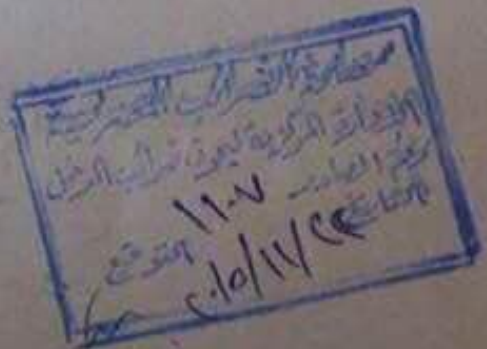 مصلحة الضرائب المصرية
الإدارة المركزية لبحوث ضرائب الدخل
رقم الصادر ١١٠٧
التاريخ ٢٠١٥/١١/٢٢ التوقيع